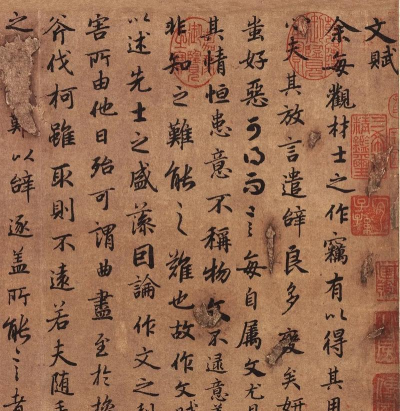 文賦
余每觀材士之作竊有以得其用
心夫其放言遣辭良多變矣妍
蚩好惡可得而言每自属文尤
其情恒患意不稱物文不逮意
非知之難能之難也故作文賦
以述先士之盛藻因論作文之利
害所由他日殆可謂曲盡至於操
斧伐柯雖取則不遠若夫随手
之 難以辭逐盖所能言者